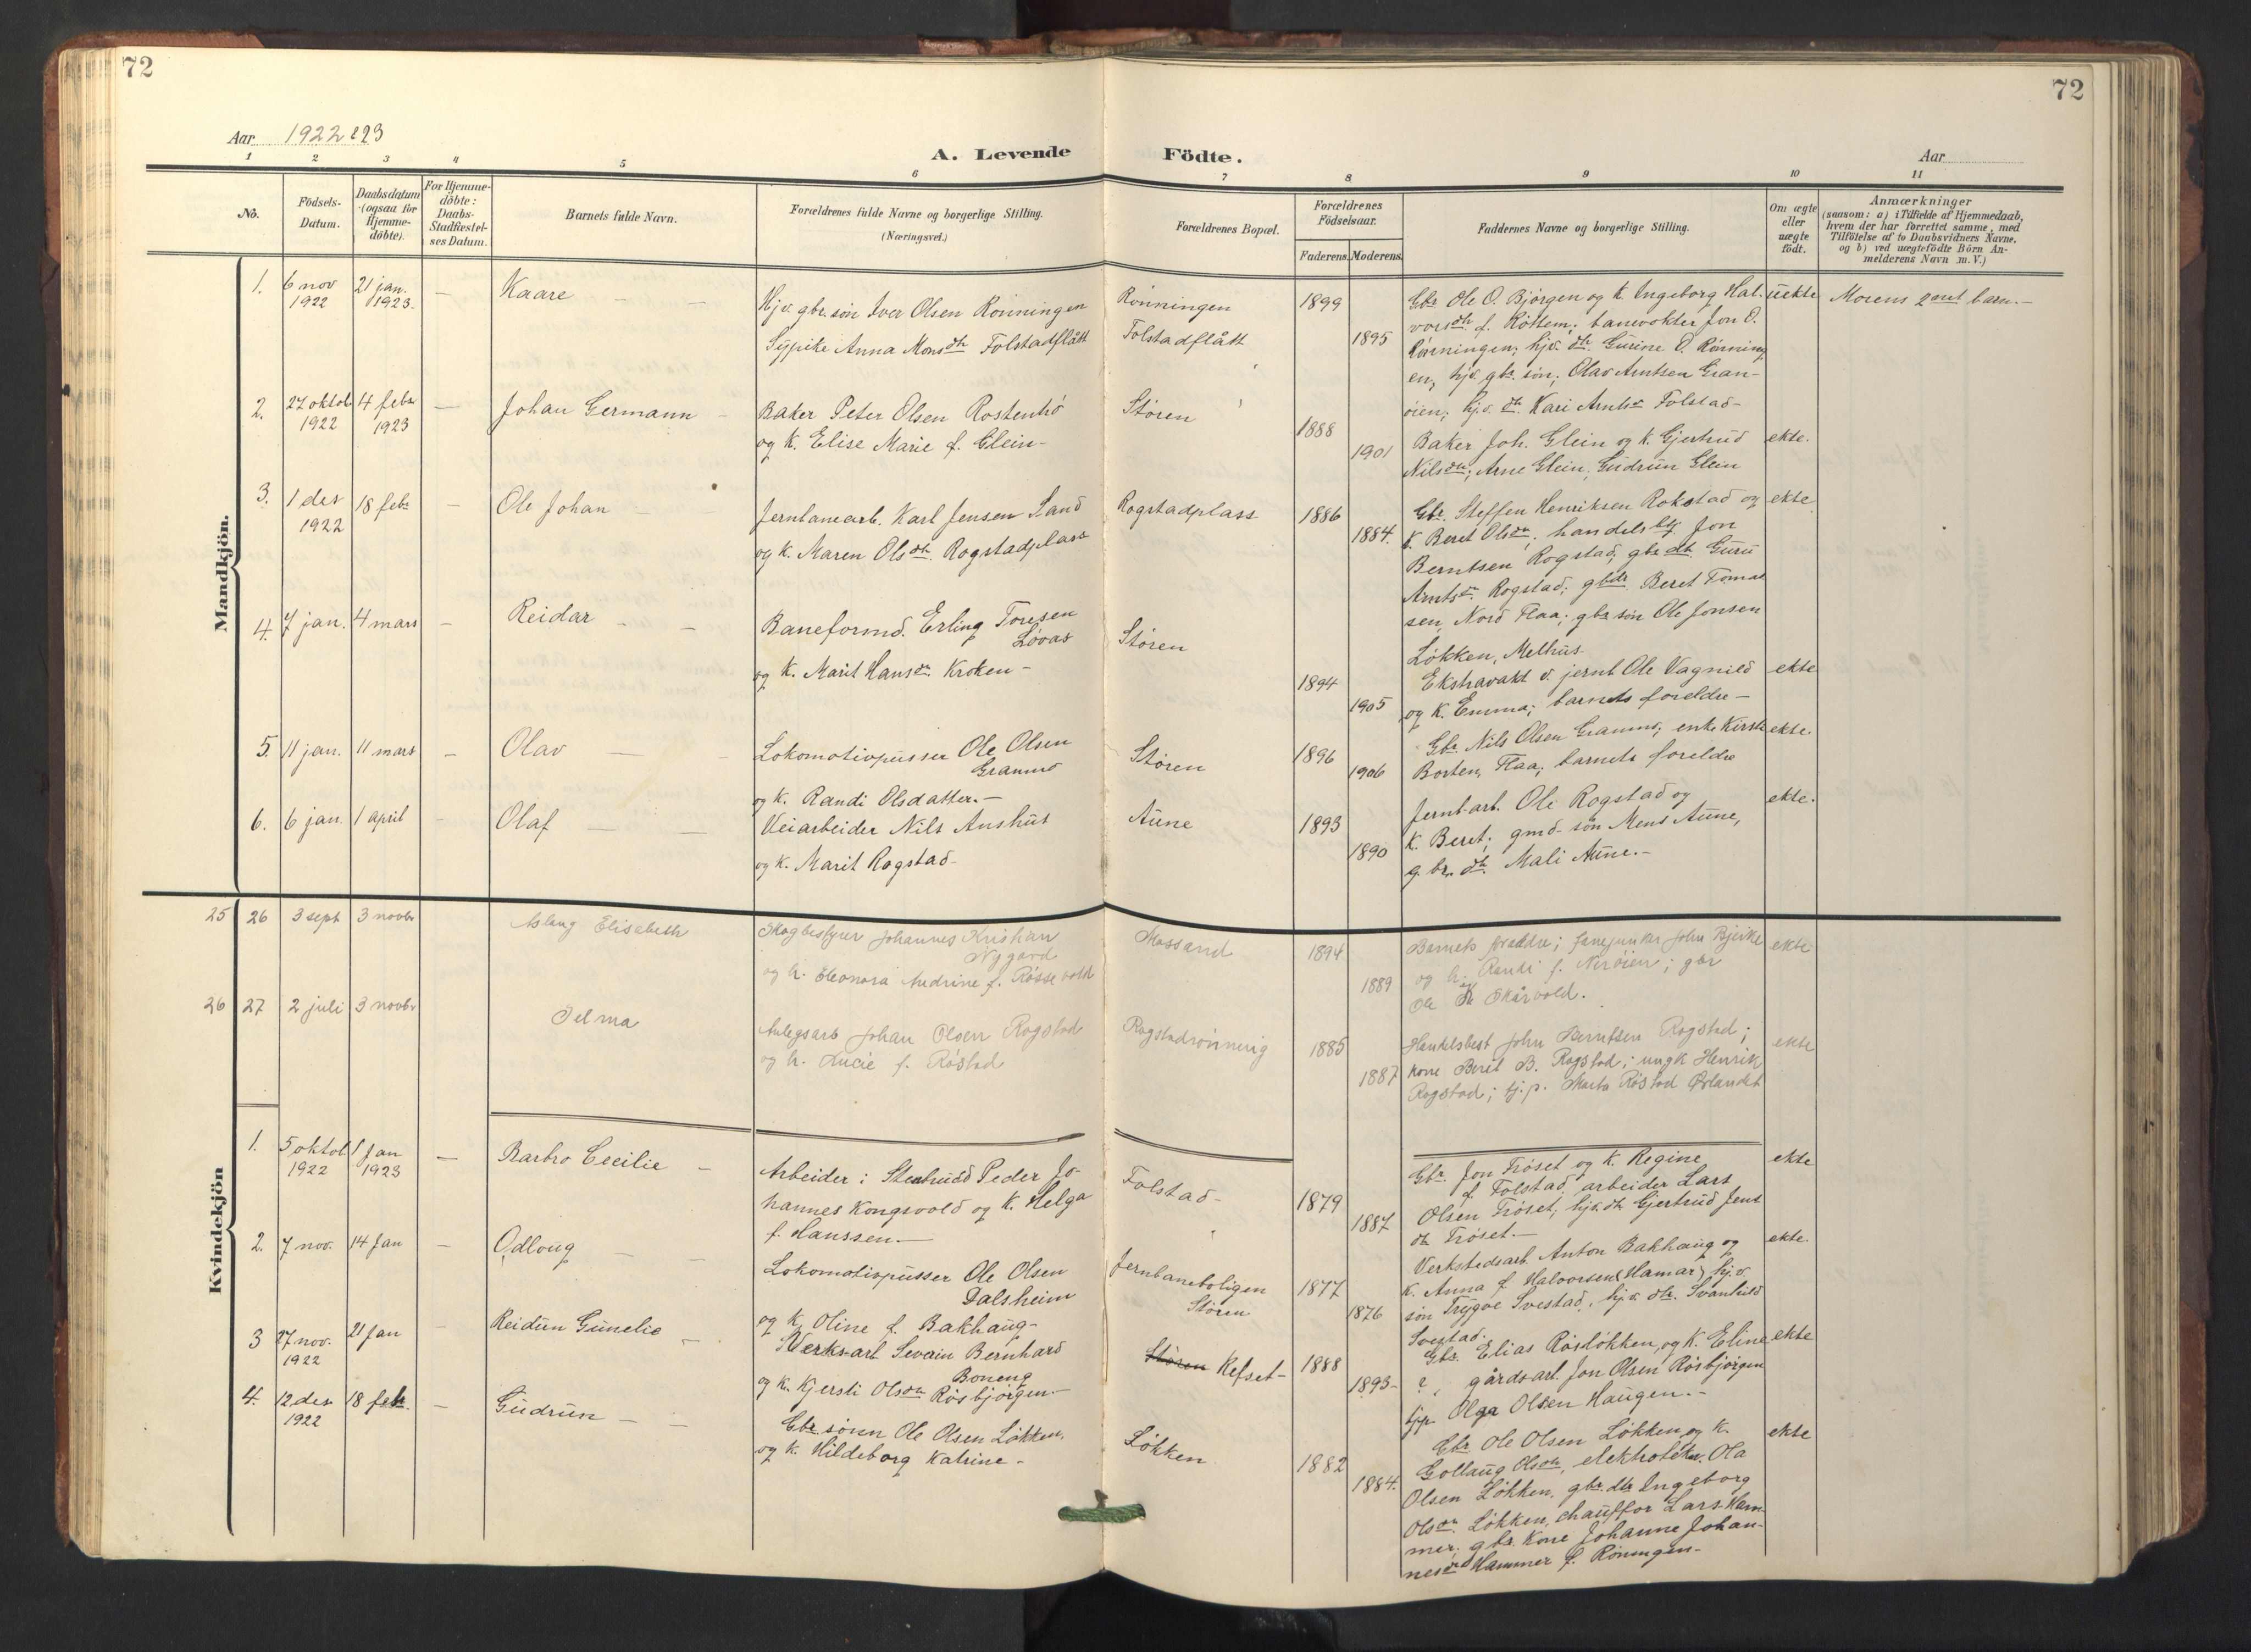 72
72
Aar 1922 & 23
A. Levende Födte.
Aar
1 2 3 4 5 6 7 8 9 10 11
No.
Födsels-Datum.
Daabsdatum (ogsaa for Hjemme-döbte).
For Hjemme-döbte: Daabs-Stadfæstel-ses Datum.
Barnets fulde Navn.
Forældrenes fulde Navne og borgerlige Stilling.
(Næringsvei.)
Forældrenes Bopæl.
Forældrenes Födselsaar.
Faderens. Moderens.
Faddernes Navne og borgerlige Stilling.
Om ægte eller uægte födt.
Anmærkninger
(saasom: a) i Tilfælde af Hjemmedaab,
hvem der har forrettet samme, med
Tilföielse af to Daabsvidners Navne,
og b) ved uægtefödte Börn An-
melderens Navn m. V.)
Mandkjön.
1. 6 nov 1922 21 jan. 1923. — Kaare — —
Hjv. gbr. søn Iver Olsen Rönningen
Sypike Anna Monsdtr Folstadflått
Rönningen
Folstadflått
1899
1895
Gbr Ole O. Bjørgen og k. Ingeborg Hal-
vorsdtr f. Rottem; banevokter Jon O.
Rönningen; hjv. dtr. Gurine O. Rönning
en, hjv. gbr. søn; Olav Arntsen Gran-
øien; hjv. dtr. Kari Arntsdr Folstad-
uekte
Morens 2net barn.—
2. 27 oktob 1922 4 febr 1923 — Johan Germann —
Baker Peter Olsen Rostenhö
og k. Elise Marie f. Glein-
Støren
1888
1901
Baker Joh. Glein og k. Gjertrud
Nilsdtr; Arne Glein, Gudrun Glein
ekte.
3. 1 des 1922 18 febr — Ole Johan — —
Jernbanearb. Karl Jensen Sand
og k. Maren Olsdtr. Rogstadplass
Rogstadplass
1886
1884.
Gbr. Steffen Henriksen Rokstad og
k. Beret Olsdtr; handelsbtj. Jon
Berntsen Rogstad; gbr dtr. Guru
Arntsdr. Rogstad; gbdr. Beret Tomas
sen, Nord Flaa; gbr søn Ole Jonsen
Løkken, Melhus.
ekte
4. 7 jan. 4 mars — Reidar — —
Baneformd. Erling Toresen
Løvas
og k. Marit Hansdtr. Kroken-
Støren
1894
1905
Ekstravakt v. jernb Ole Vagnild
og k. Emma; barnets foreldre—
ekte
5. 11 jan. 11 mars — Olav — —
Lokomotivpusser Ole Olsen
Gramno
og k. Randi Olsdatter.—
Støren
1896
1906
Gbr. Nils Olsen Gramno; enke Kirsti
Borten, Flaa; barnets foreldre
ekte.
6. 6 jan. 1 april — Olaf — —
Veiarbeider Nils Aushus
og k. Marit Rogstad-
Aune
1893
1890
Jernb-arb. Ole Rogstad og
k. Beret; gmd- søn Mons Aune,
g. br. dtr. Mali Aune.—
ekte.
Kvindekjön
25 26 3 sept 3 novbr Aslaug Elisabeth
Skogbestyrer Johannes Kristian
Nygård
og h. Eleonora Andrine f. Rosse vold
Mossand
1894
1889
Barnets foreldre; fanejunker John Bjerke
og h. Randi f. Nerøien; gbr
Ole K Skårvold.
ekte
26 27 2 juli 3 novbr Selma
Anlegsarb Johan Olsen Rogstad
og h. Lucie f. Röstad
Rogstadrönning
1885
1887
Handelsbest John Berntsen Rogstad;
kone Berit B. Rogstad; ungk Henrik
Rogstad; tj.p. Marta Röstad Ørlandet
ekte
1. 5 oktob 1922 1 Jan 1923 — Barbro Cecilie —
Arbeider i Stenbrudd Peder Jo-
hannes Kongsvold og k. Helga
f. Hanssen.—
Folstad-
1879
1887
Gbr. Jon Trøset og k. Regine
f. Folstad, arbeider Lars
Olsen Trøset; hjv. dtr Gjertrud Jens
dtr Trøset.—
ekte
2. 7 nov. 14 Jan — Odlaug — —
Lokomotivpusser Ole Olsen
Dalsheim
og k. Oline f. Bakhaug-
Jernbaneboligen
Støren
1877
1876
Verkstedsarb. Anton Bakhaug og
k. Anna f. Halvorsen (Hamar), hj.v.
søn Trygve Svestad, hjv. dtr. Svanhild
Svestad.
ekte.
3 27 nov. 1922 21 Jan — Reidun Gunelie —
Verks-arb Severin Bernhard
Boneng
og k. Kjersti Olsdtr Rösbjørgen.—
Støren Refset-
1888
1893-
Gbr. Elias Rösløkken, og k. Eline
?, gårdsarb. Jon Olsen Rösbjörgen
tjp. Olga Olsen Haugen.-
ekte
4. 12 des 1922 18 febr. — Gudrun — —
Gbr sønn Ole Olsen Løkken.
og k. Hildeborg Katrine-
Løkken
1882
1884.
Gbr Ole Olsen Løkken, og k.
Gollaug Olsdtr, elektrotekn. Ola
Olsen Løkken, gbr. dtr Ingeborg
Olsdtr. Løkken, chauffør Lars Ham-
mer; gbr. kone Johanne Johan-
nesdr Hammer f. Röningen-
ekte